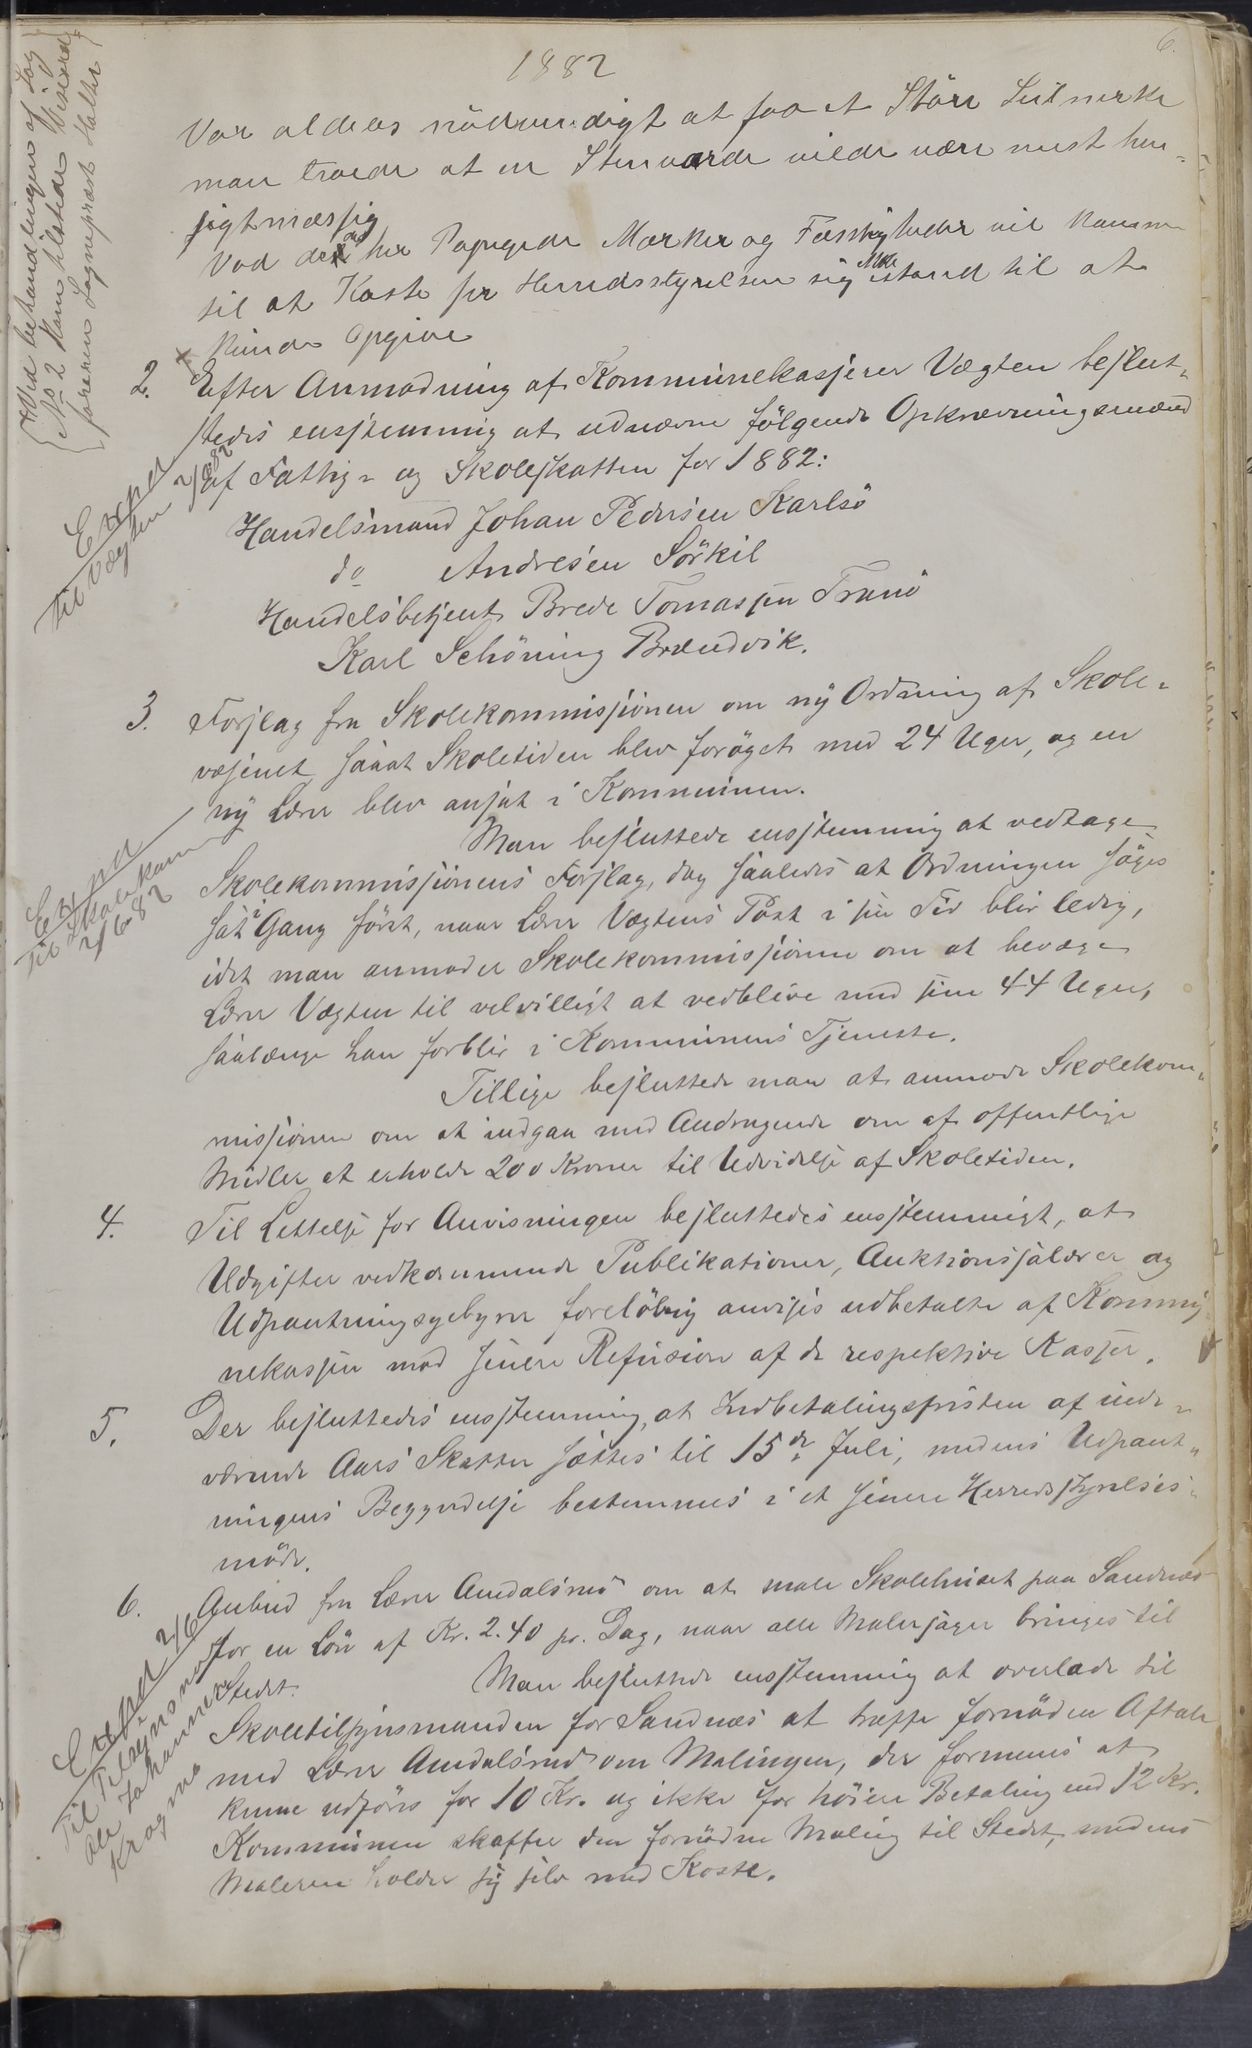 1882
6.
Var aldeles nödvendigt at faa et Störe Seilmerke
man troede at en Stenvarde vilde være mest hen-
sigtmæssig
Vad de her Papegede Mærker og Fæstigheder vil komme
til at Koste ser Herredsstyrelsen sig ikke istand til at
kunde Opgive
+ Ved behandlingen af Sag
No 2 kom tilstede Viseord-
föreren Sogneprest Halter
2. Efter Anmodning af Kommunekasjerer Vægten beslut-
tedes enstemmig at udnævne fölgende Opkrævningsmænd
af Fattig- og Skoleskatten for 1882:
Handelsmand Johan Pedersen Karlsö
do Andresen Sörkil
Handelsbetjent Brede Tomassen Tranö
Karl Schöning Brændvik.
Exped
til Vægten 2/6 82
3. Forslag fra Skolekommissionen om ny Ordning af Skole-
væsenet, saaat Skoletiden blev foröget med 24 Uger, og en
ny Lærer blev ansat i Kommunen.
Man besluttede enstemmig at vedtage
Skolekommissionens Forslag, dog saaledes at Ordningen söges
sat i Gang först, naar Lærer Vægtens Post i sin Tid blir ledig,
idet man anmoder Skolekommissionen om at bevæge
Lærer Vægten til velvilligt at vedblive med sine 44 Uger,
saalænge han forblir i Kommunens Tjeneste.
Exped
til Skolekom
2/6 82
Tillige besluttede man at anmode Skolekom-
missionen om at indgaa med Andragende om af offentlige
Midler at erholde 200 Kroner til Udvidelse af Skoletiden.
4. Til Lettelse for Anvisningen besluttedes enstemmigt, at
Udgifter vedkommende Publikationer, Auktionssalærer og
Udpantningsgebyrer foreløbig anvises udbetalte af Kommu-
nekassen mod senere Refusion af de respektive Kasser.
5. Der besluttedes enstemmig, at Indbetalingsfristen af inde-
værende Aars Skatter sættes til 15de Juli, medens Udpant-
ningens Begyndelse bestemmes i et senere Herredsstyrelses-
möde.
6. Anbud fra Lærer Amdalsrud om at male Skolehuset paa Sandnæs
for en Lön af Kr. 2.40 pr. Dag, naar alle Malersager bringes til
Stedet.
Man besluttede enstemmig at overlade til
Skoletilsynsmanden for Sandnæs at træffe fornöden Aftale
med Lærer Amdalsrud om Malingen, der formenes at
kunne udföres for 10 Kr. og ikke for höiere Betaling end 12 Kr.
Kommunen skaffer den fornödne Maling til Stedet, medens
Maleren holder sig selv med Koste.
Exped 2/6
Til Tilsynsmand
Ole Johannesen
Kragnæs